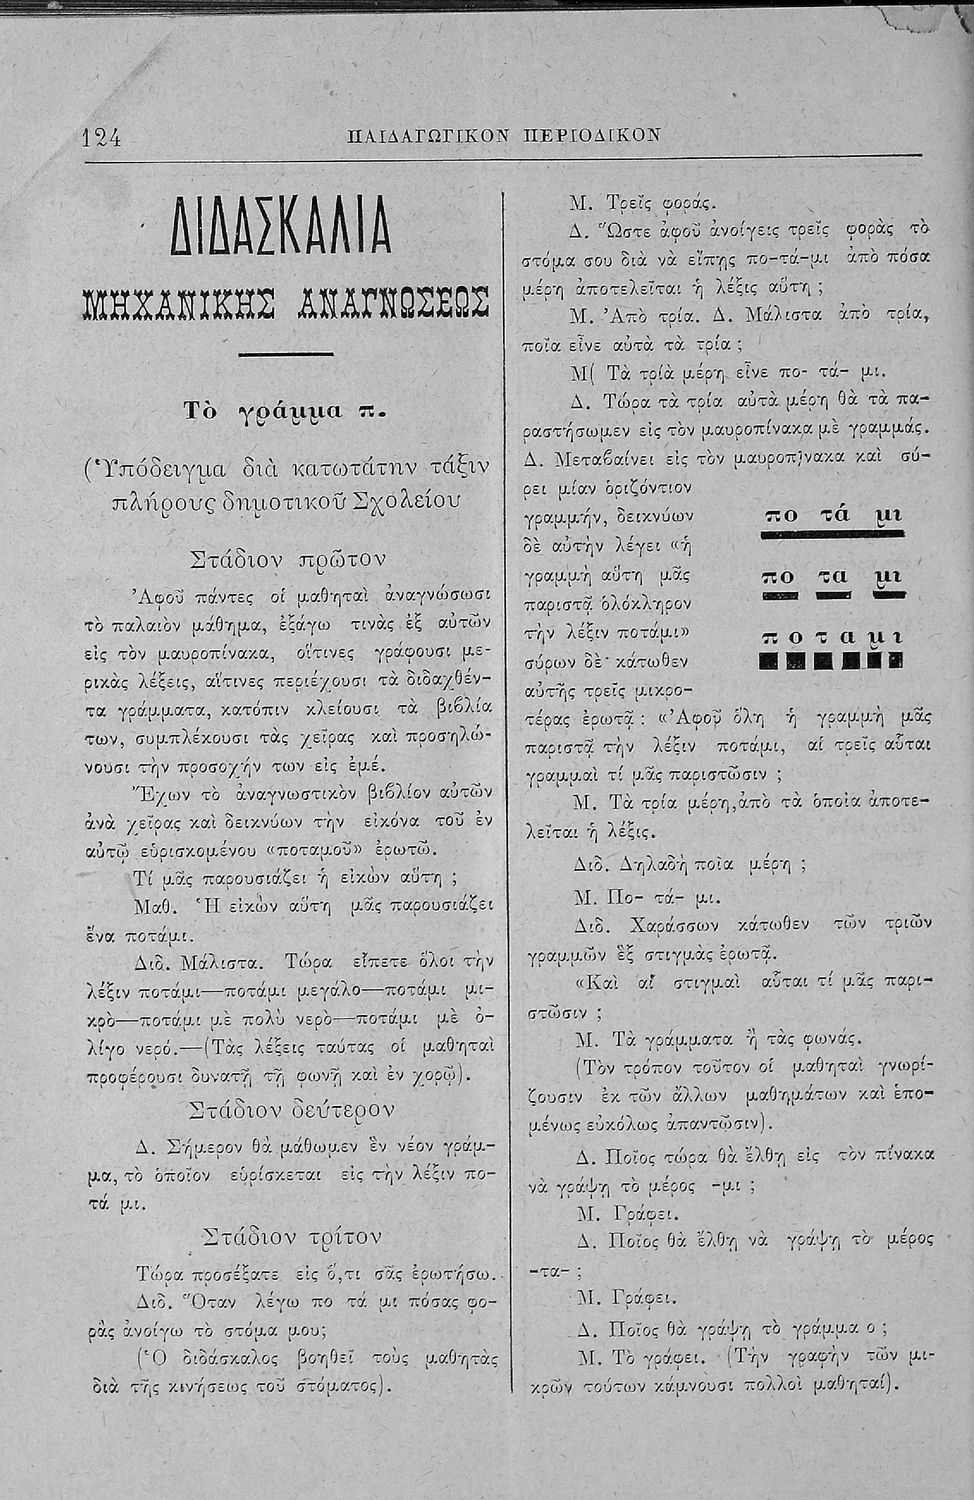 124
ΠΑΙΔΑΓΩΓΙΚΟΝ ΠΕΡΙΟΔΙΚΟΝ
ΔΙΔΑΣΚΑΛΙΑ
ΜΗΧΑΝΙΚΗΣ ΑΝΑΓΝΩΣΕΩΣ
Τὸ γράμμα π.
(Ὑπόδειγμα διὰ κατωτάτην τάξιν
πλήρους δημοτικοῦ Σχολείου
Στάδιον πρῶτον
Ἀφοῦ πάντες οἱ μαθηταὶ ἀναγνώσωσι
τὸ παλαιὸν μάθημα, ἐξάγω τινὰς ἐξ αὐτῶν
εἰς τὸν μαυροπίνακα, οἵτινες γράφουσι με-
ρικὰς λέξεις, αἵτινες περιέχουσι τὰ διδαχθέν-
τα γράμματα, κατόπιν κλείουσι τὰ βιβλία
των, συμπλέκουσι τὰς χεῖρας καὶ προσηλώ-
νουσι τὴν προσοχήν των εἰς ἐμέ.
Ἔχων τὸ ἀναγνωστικὸν βιβλίον αὐτῶν
ἀνὰ χεῖρας καὶ δεικνύων τὴν εἰκόνα τοῦ ἐν
αὐτῷ εὑρισκομένου «ποταμοῦ» ἐρωτῶ.
Τί μᾶς παρουσιάζει ἡ εἰκὼν αὕτη ;
Μαθ. Ἡ εἰκὼν αὕτη μᾶς παρουσιάζει
ἕνα ποτάμι.
Διδ. Μάλιστα. Τώρα εἴπετε ὅλοι τὴν
λέξιν ποτάμι—ποτάμι μεγάλο—ποτάμι μι-
κρὸ—ποτάμι μὲ πολὺ νερὸ—ποτάμι μὲ ὀ-
λίγο νερό.—(Τὰς λέξεις ταύτας οἱ μαθηταὶ
προφέρουσι δυνατῇ τῇ φωνῇ καὶ ἐν χορῷ).
Στάδιον δεύτερον
Δ. Σήμερον θὰ μάθωμεν ἓν νέον γράμ-
μα, τὸ ὁποῖον εὑρίσκεται εἰς τὴν λέξιν πο-
τά μι.
Στάδιον τρίτον
Τώρα προσέξατε εἰς ὅ,τι σᾶς ἐρωτήσω.
Διδ. Ὅταν λέγω πο τά μι πόσας φο-
ρὰς ἀνοίγω τὸ στόμα μου;
(Ὁ διδάσκαλος βοηθεῖ τοὺς μαθητὰς
διὰ τῆς κινήσεως τοῦ στόματος).
Μ. Τρεῖς φοράς.
Δ. Ὥστε ἀφοῦ ἀνοίγεις τρεῖς φορὰς τὸ
στόμα σου διὰ νὰ εἴπῃς πο-τά-μι ἀπὸ πόσα
μέρη ἀποτελεῖται ἡ λέξις αὕτη ;
Μ. Ἀπὸ τρία. Δ. Μάλιστα ἀπὸ τρία,
ποῖα εἶνε αὐτὰ τὰ τρία ;
Μ( Τὰ τρία μέρη εἶνε πο- τά- μι.
Δ. Τώρα τὰ τρία αὐτὰ μέρη θὰ τὰ πα-
ραστήσωμεν εἰς τὸν μαυροπίνακα μὲ γραμμάς.
Δ. Μεταβαίνει εἰς τὸν μαυροπίνακα καὶ σύ-
ρει μίαν ὁριζόντιον
γραμμήν, δεικνύων
δὲ αὐτὴν λέγει «ἡ
γραμμὴ αὕτη μᾶς
παριστᾷ ὁλόκληρον
τὴν λέξιν ποτάμι»
σύρων δὲ κάτωθεν
αὐτῆς τρεῖς μικρο-
πο τά μι
πο τα μι
π ο τ α μ ι
τέρας ἐρωτᾷ : «Ἀφοῦ ὅλη ἡ γραμμὴ μᾶς
παριστᾷ τὴν λέξιν ποτάμι, αἱ τρεῖς αὗται
γραμμαὶ τί μᾶς παριστῶσιν ;
Μ. Τὰ τρία μέρη,ἀπὸ τὰ ὁποῖα ἀποτε-
λεῖται ἡ λέξις.
Διδ. Δηλαδὴ ποῖα μέρη ;
Μ. Πο- τά- μι.
Διδ. Χαράσσων κάτωθεν τῶν τριῶν
γραμμῶν ἓξ στιγμὰς ἐρωτᾷ.
«Καὶ αἱ στιγμαὶ αὗται τί μᾶς παρι-
στῶσιν ;
Μ. Τὰ γράμματα ἢ τὰς φωνάς.
(Τὸν τρόπον τοῦτον οἱ μαθηταὶ γνωρί-
ζουσιν ἐκ τῶν ἄλλων μαθημάτων καὶ ἑπο-
μένως εὐκόλως ἀπαντῶσιν).
Δ. Ποῖος τώρα θὰ ἔλθῃ εἰς τὸν πίνακα
νὰ γράψῃ τὸ μέρος -μι ;
Μ. Γράφει.
Δ. Ποῖος θὰ ἔλθῃ νὰ γράψῃ τὸ μέρος
-τα- ;
Μ. Γράφει.
Δ. Ποῖος θὰ γράψῃ τὸ γράμμα ο ;
Μ. Τὸ γράφει. (Τὴν γραφὴν τῶν μι-
κρῶν τούτων κάμνουσι πολλοὶ μαθηταί).